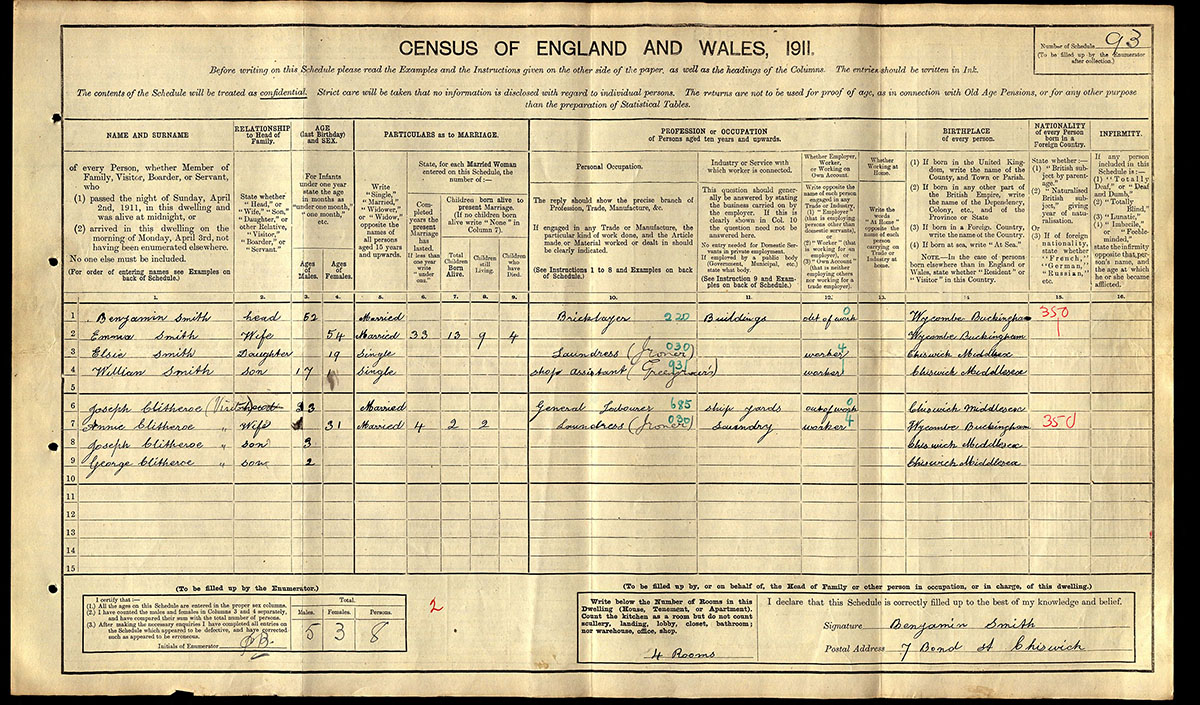 CENSUS OF ENGLAND AND WALES, 1911.
Number of Schedule 93
(To be filled up by the Enumerator
after collection.)
Before writing on this Schedule please read the Examples and the Instructions given on the other side of the paper, as well as the headings of the Columns. The entries should be written in Ink.
The contents of the Schedule will be treated as confidential. Strict care will be taken that no information is disclosed with regard to individual persons. The returns are not to be used for proof of age, as in connection with Old Age Pensions, or for any other purpose
than the preparation of Statistical Tables.
NAME AND SURNAME
of every Person, whether Member of
Family, Visitor, Boarder, or Servant,
who
(1) passed the night of Sunday, April
2nd, 1911, in this dwelling and
was alive at midnight, or
(2) arrived in this dwelling on the
morning of Monday, April 3rd, not
having been enumerated elsewhere.
No one else must be included.
(For order of entering names see Examples on
back of Schedule.)
RELATIONSHIP
to Head of
Family.
State whether
"Head," or
"Wife," "Son,"
"Daughter," or
other Relative,
"Visitor,"
"Boarder," or
"Servant."
AGE
(last Birthday)
and SEX.
For Infants
under one year
state the age
in months as
"under one month,"
"one month,"
etc.
Ages
of
Males.
Ages
of
Females.
PARTICULARS as to MARRIAGE.
Write
"Single,"
"Married,"
"Widower,"
or "Widow,"
opposite the
names of
all persons
aged 15 years
and upwards.
State, for each Married Woman
entered on this Schedule, the
number of:—
Completed
years the
present
Marriage
has
lasted.
If less than
one year
write
"under
one."
Children born alive to
present Marriage.
(If no children born
alive write "None" in
Column 7).
Total
Children
Born
Alive.
Children
still
Living.
Children
who
have
Died.
PROFESSION or OCCUPATION
of Persons aged ten years and upwards.
Personal Occupation.
The reply should show the precise branch of
Profession, Trade, Manufacture, &c.
If engaged in any Trade or Manufacture, the
particular kind of work done, and the Article
made or Material worked or dealt in should
be clearly indicated.
(See Instructions 1 to 8 and Examples on back
of Schedule.)
Industry or Service with
which worker is connected.
This question should gener-
ally be answered by stating
the business carried on by
the employer. If this is
clearly shown in Col. 10
the question need not be
answered here.
No entry needed for Domestic Ser-
vants in private employment.
If employed by a public body
(Government, Municipal, etc.)
state what body.
(See Instruction 9 and Exam-
ples on back of Schedule.)
Whether Employer,
Worker,
or Working on
Own Account.
Write opposite the
name of each person
engaged in any
Trade or Industry,
(1) "Employer" (that
is employing persons
other than
domestic servants),
or
(2) "Worker" (that
is working for an
employer), or
(3) "Own Account"
(that is neither
employing others
nor working for a
trade employer).
Whether
Working at
Home.
Write the
words
"At Home"
opposite the
name of each
person
carrying on
Trade or
Industry at
home.
BIRTHPLACE
of every person.
(1) If born in the United King-
dom, write the name of the
County, and Town or Parish.
(2) If born in any other part of
the British Empire, write
the name of the Dependency,
Colony, etc., and of the
Province or State
(3) If born in a Foreign Country,
write the name of the Country.
(4) If born at sea, write "At Sea."
NOTE.—In the case of persons
born elsewhere than in England or
Wales, state whether "Resident" or
"Visitor" in this Country.
NATIONALITY
of every Person
born in a
Foreign Country.
State whether:—
(1) "British subject
by parent-
age,"
(2) "Naturalised
British sub-
ject," giving
year of natu-
ralisation.
Or
(3) If of foreign
nationality,
state whether
"French,"
"German,"
"Russian,"
etc.
INFIRMITY.
If any person
included in this
Schedule is:—
(1) "Totally
Deaf," or "Deaf
and Dumb,"
(2) "Totally
Blind,"
(3) "Lunatic,"
(4) "Imbecile,"
or "Feeble-
minded,"
state the infirmity
opposite that per-
son's name, and
the age at which
he or she became
afflicted.
1. 2. 3. 4. 5. 6. 7. 8. 9. 10. 11. 12. 13. 14. 15. 16.
1 Benjamin Smith head 52 Married Bricklayer 220 Buildings out of work 0 Wycombe Buckingham 350
2 Emma Smith Wife 54 Married 33 13 9 4 Wycombe Buckingham
3 Elsie Smith Daughter 19 Single Laundress (Ironer) 030 worker 4 Chiswick Middlesex
4 William Smith son 17 Single shop assistant (Greengrocer's) 931 worker Chiswick Middlesex
5
6 Joseph Clitheroe (Visitor) 33 Married General Labourer 685 ship yards out of work 0 Chiswick Middlesex
7 Annie Clitheroe " Wife 31 Married 4 2 2 Laundress (Ironer) 030 Laundry worker 4 Wycombe Buckingham 350
8 Joseph Clitheroe " son 3 Chiswick Middlesex
9 George Clitheroe " son 2 Chiswick Middlesex
10
11
12
13
14
15
(To be filled up by the Enumerator.)
I certify that:—
(1.) All the ages on this Schedule are entered in the proper sex columns.
(2.) I have counted the males and females in Columns 3 and 4 separately,
and have compared their sum with the total number of persons.
(3.) After making the necessary enquiries I have completed all entries on
the Schedule which appeared to be defective, and have corrected
such as appeared to be erroneous.
Initials of Enumerator
Total.
Males. Females. Persons.
5 3 8
2
(To be filled up by, or on behalf of, the Head of Family or other person in occupation, or in charge, of this dwelling.)
Write below the Number of Rooms in this
Dwelling (House, Tenement, or Apartment).
Count the kitchen as a room but do not count
scullery, landing, lobby, closet, bathroom;
nor warehouse, office, shop.
4 Rooms
I declare that this Schedule is correctly filled up to the best of my knowledge and belief.
Signature Benjamin Smith
Postal Address 7 Bond st Chiswick